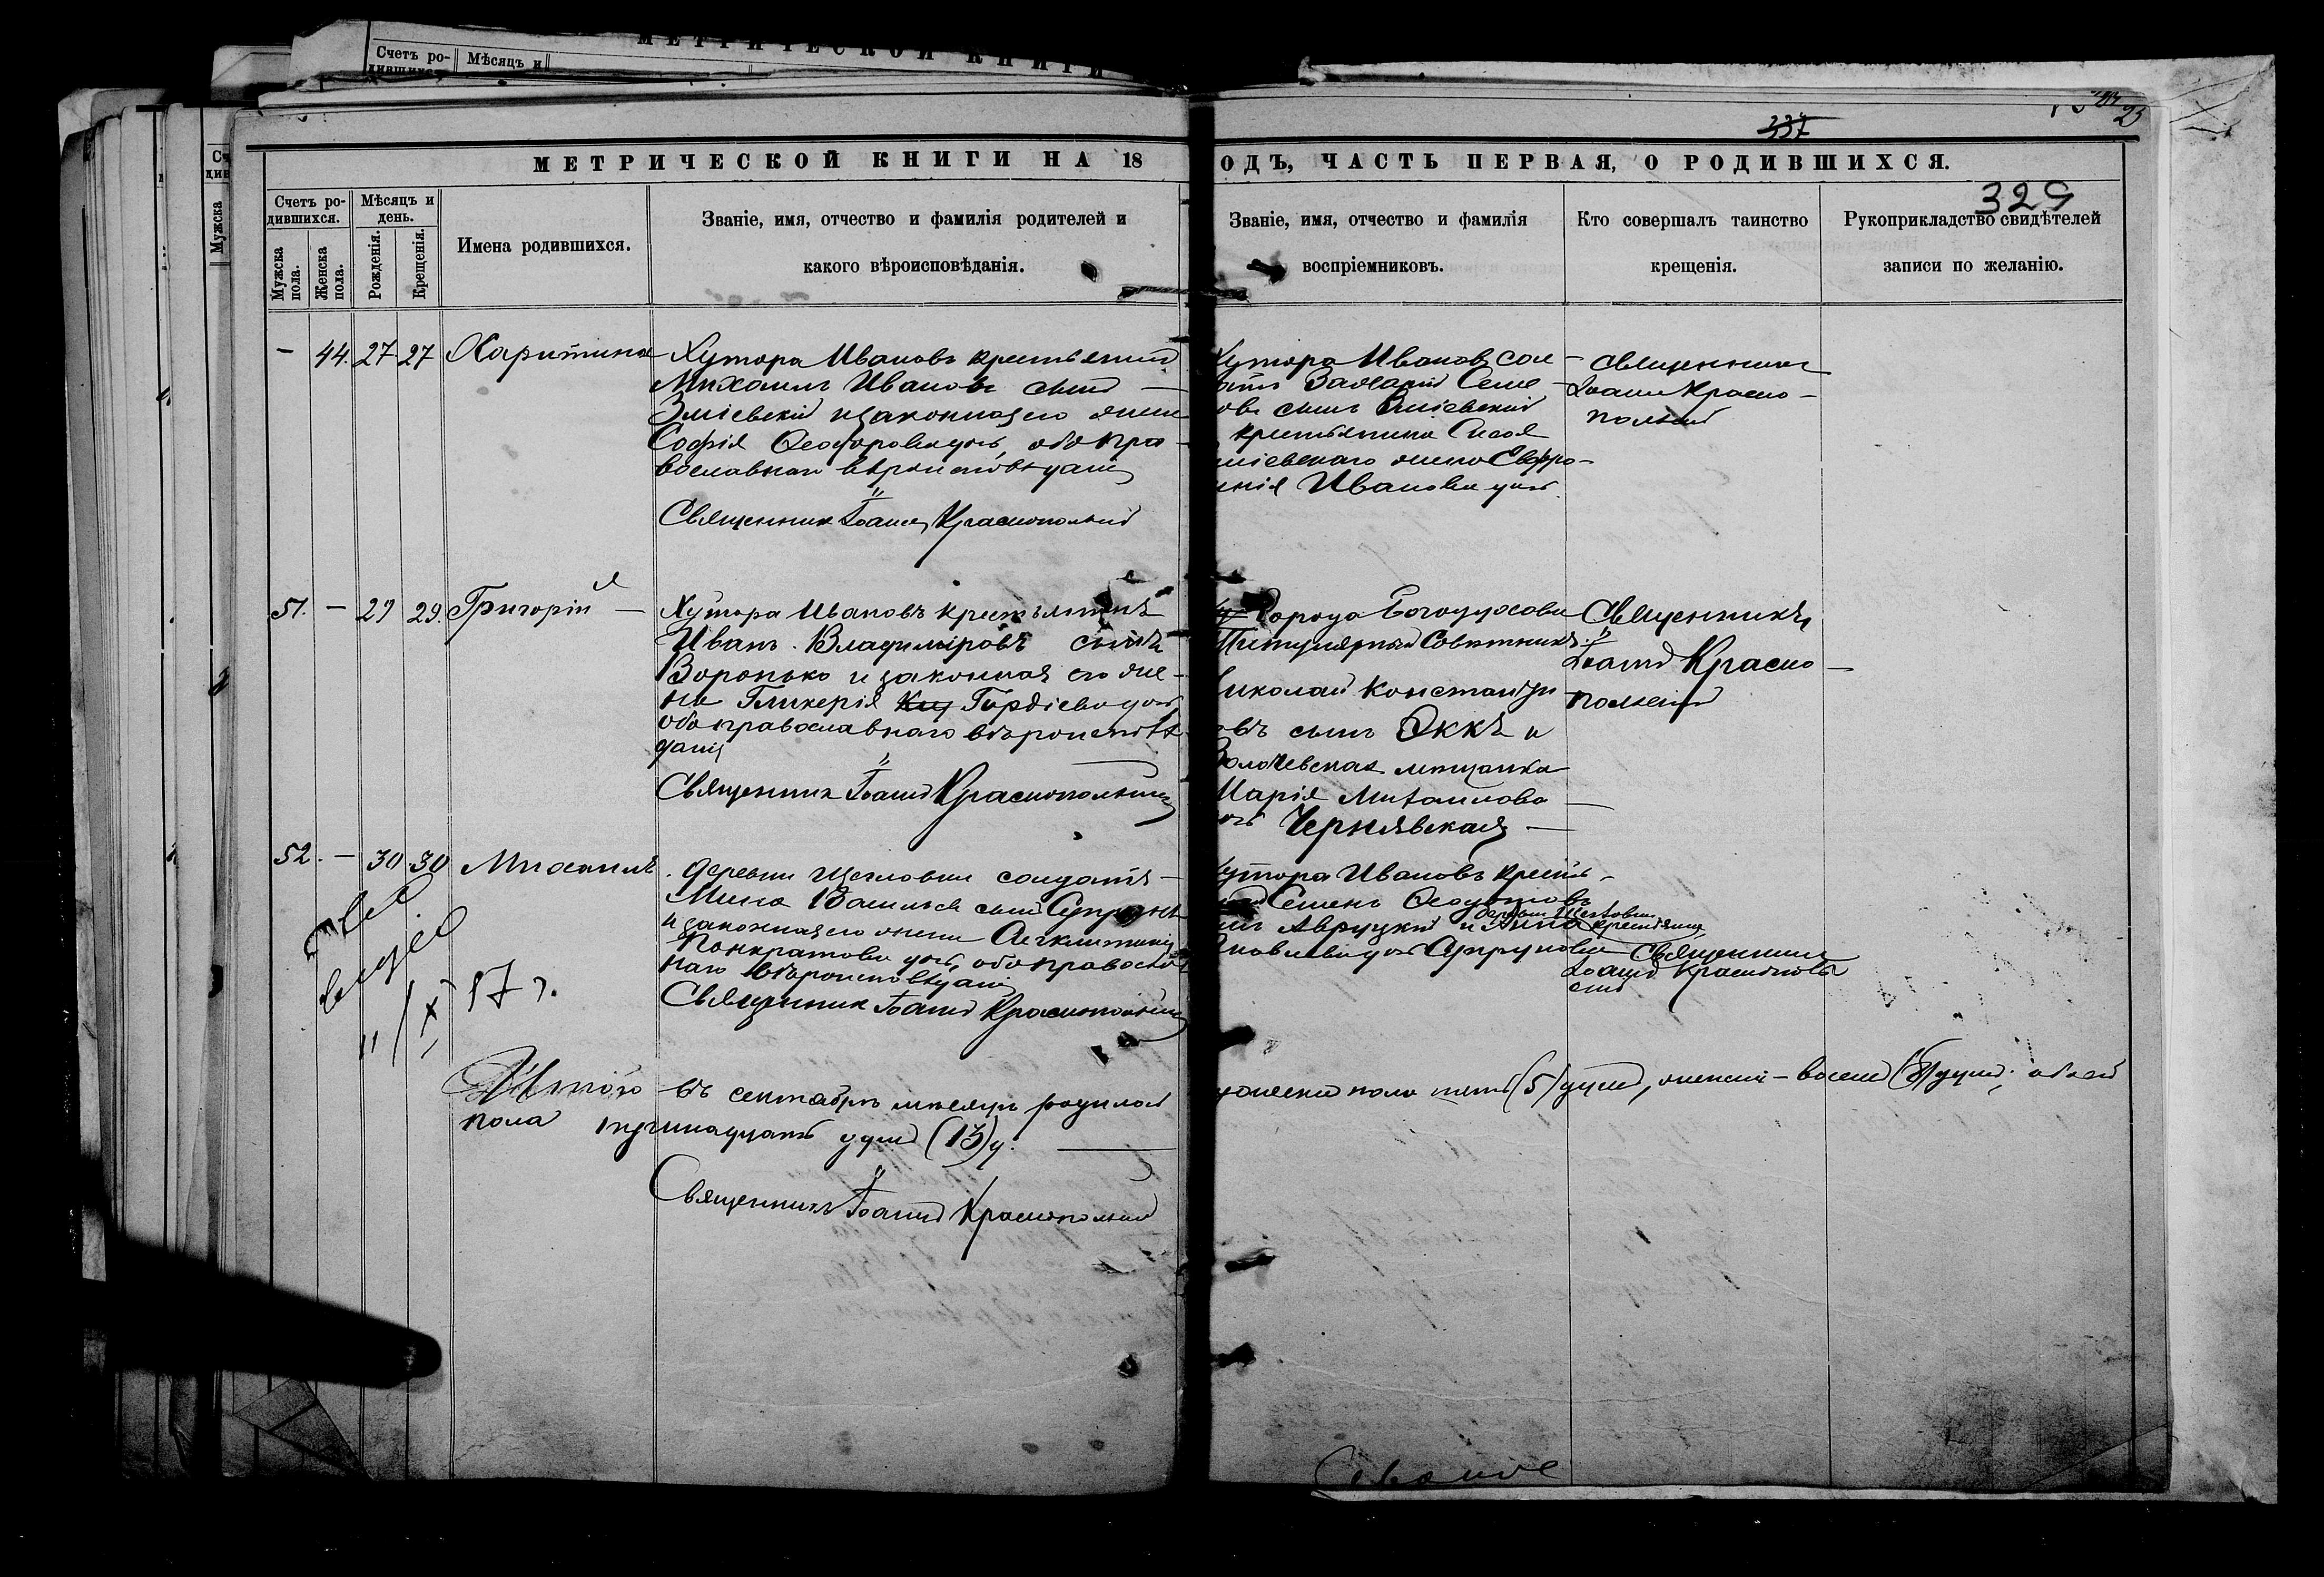 Счетъ ро-
дившихся.
Мѣсяцъ и
МЕТРИЧЕСКОЙ КНИГИ
337
329
МЕТРИЧЕСКОЙ КНИГИ НА 18
ОДЪ, ЧАСТЬ ПЕРВАЯ, О РОДИВШИХСЯ.
Счетъ ро-
дившихся.
Мужска
пола.
Женска
пола.
Мѣсяцъ и
день.
Рожденія.
Крещенія.
Имена родившихся.
Званіе, имя, отчество и фамилія родителей и
какого вѣроисповѣданія.
Званіе, имя, отчество и фамилія
воспріемниковъ.
Кто совершалъ таинство
крещенія.
Рукоприкладство свидѣтелей
записи по желанію.
- 44. 27 27 Харитина
Хутора Ивановъ крестьянинъ
Михаилъ Ивановъ сынъ
Зміевскій и законная его жена
Софія Ѳеодорова дочь, оба пра-
вославнаго вѣроисповѣданія
Священникъ Іоаннъ Краснопольскій
Хутора Ивановъ сол-
Семе-
овъ сынъ Зміевскій
крестьянина
міевскаго жена Евфро-
инія Иванова дочь.
Священникъ
Іоаннъ Красно-
польскій
51. - 29 29. Григорій
Хутора Ивановъ крестьянинъ
Иванъ Владиміровъ сынъ
Воронько и законная его же-
на Гликерія Гордіева дочь
оба православнаго вѣроисповѣ-
данія
Священникъ Іоаннъ Краснопольскій
Города Богодухова
Титулярный Совѣтникъ
Николай Константи-
овъ сынъ Эккъ и
Золочевская мѣщанка
Марія Михаилова
очь Чернявская
Священникъ
Іоаннъ Красно-
польскій
52. - 30 30 Михаилъ
деревни Щегловки солдатъ
Мина Васильевъ сынъ Супрунъ
и законная его жена
Панкратова дочь, оба православ-
наго вѣроисповѣданія
Священникъ Іоаннъ Краснопольскій
Хутора Ивановъ крестья-
Семенъ
и Анна
Яковлева дочь Супрунова
Священникъ
Іоаннъ Краснополь-
скій
17 г.
Итого въ сентябрѣ мѣсяцѣ родилось
мужеска пола пять (5) душъ, женска - восемь (8) душъ; обоего
пола тринадцать душъ (13) д.
Священникъ Іоаннъ Краснопольскій